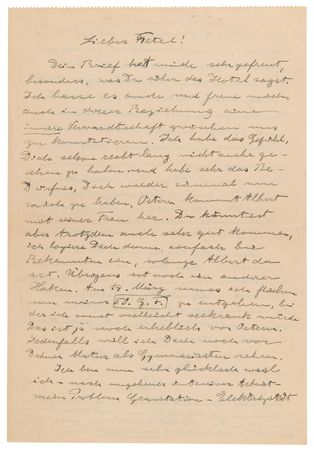 Lieber Tetel!
Dein Brief hat mich sehr gefreut
besonders, was Du über das Hotel sagst.
Ich hasse es auch und freue mich,
auch in dieser Beziehung eine
innere Verwandtschaft zwischen uns
zu konstatieren. Ich habe das Gefühl,
Dich schon recht lang nicht mehr ge-
sehen zu haben und habe sehr das Be-
dürfnis, Dich wieder einmal um
mich zu haben. Ostern kommt Albert
mit seiner Frau her. Du könntest
aber trotzdem auch sehr gut kommen,
ich logiere Dich dann einfach bei
Bekannten ein, solange Albert da
ist. Übrigens ist noch ein anderer
Haken. Am 14. März muss ich flüchten
um meinem 50. G. T. zu entgehen, bei
der ich sonst vielleicht seekrank würde
Das ist ja noch erheblich vor Ostern.
Jedenfalls will ich Dich noch vor
Deiner Matur als Gymnasiasten sehen.
Ich bin nun sehr glücklich, weil
ich - nach ungeheuer intensiver Arbeit -
mein Problem Gravitation - Elektrizität